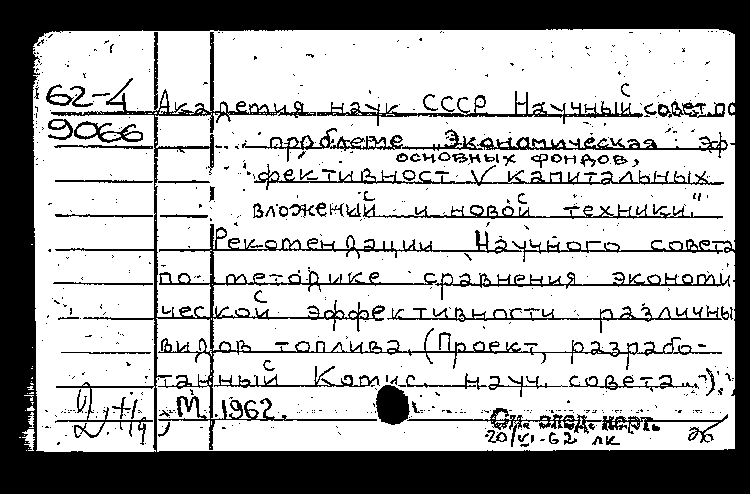 62-4
9066
Академия наук СССР Научный совет по
проблеме „Экономическая эф-
основных фондов,
фективност V капитальных
вложений и новой техники."
Рекомендации Научного совета
по методике сравнения экономи-
ческой эффективности различны
видов топлива. (Проект, разрабо-
танный Комис. науч. совета...").
М. 1962.
См. след. карт.
20/VI-62 лк